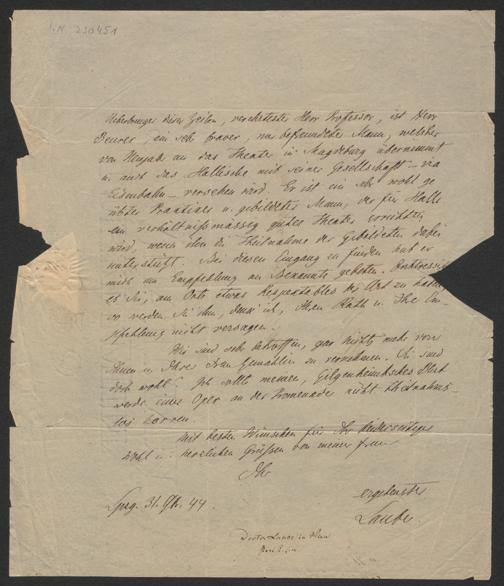 I.N. 230451
Ueberbringer dieser Zeilen, verehrtester Herr Professor, ist Herr
Beurer, ein sehr braver, mir befreundeter Mann, welcher
von Neujahr an das Theater in Magdeburg übernimmt
u. auch das Hallische mit seiner Gesellschaft – via
Eisenbahn – versehen wird. Er ist ein sehr wohl ge
übter Practicus u. gebildeter Mann, der für Halle
ein verhältnißmässig gutes Theater errichten
wird, wenn ihn die Theilnahme der Gebildeten dafür
unterstützt. Bei diesen Eingang zu finden hat er
mich um Empfehlung an Bekannte gebeten.
es Sie, am Orte etwas Respektables der Art zu haben,
so werden Sie ihm, denk' ich, Ihren Rath u. Ihre Em
pfehlung nicht versagen.
Wir sind sehr betroffen, gar nichts mehr von
Ihnen u. Ihrer Frau Gemahlin zu vernehmen. Sie sind
doch wohl? Ich sollte meinen,
werde einer Oper an der Promenade nicht theilnahm
los harren.
Mit besten Wünschen für Ihr
Wohl u. herzlichen Grüssen von meiner Frau
Ihr
ergebenster
Laube.
Lpzg. 31. 44.